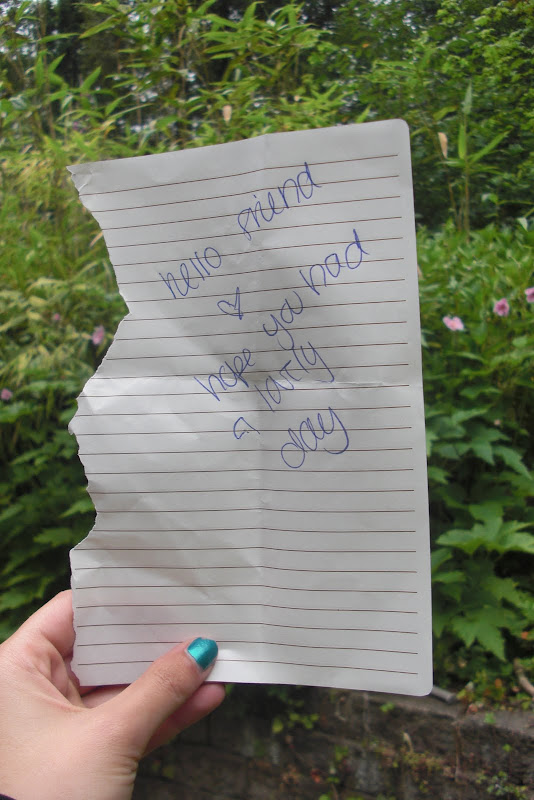 hello friend
♡
hope you had
a lovely
day